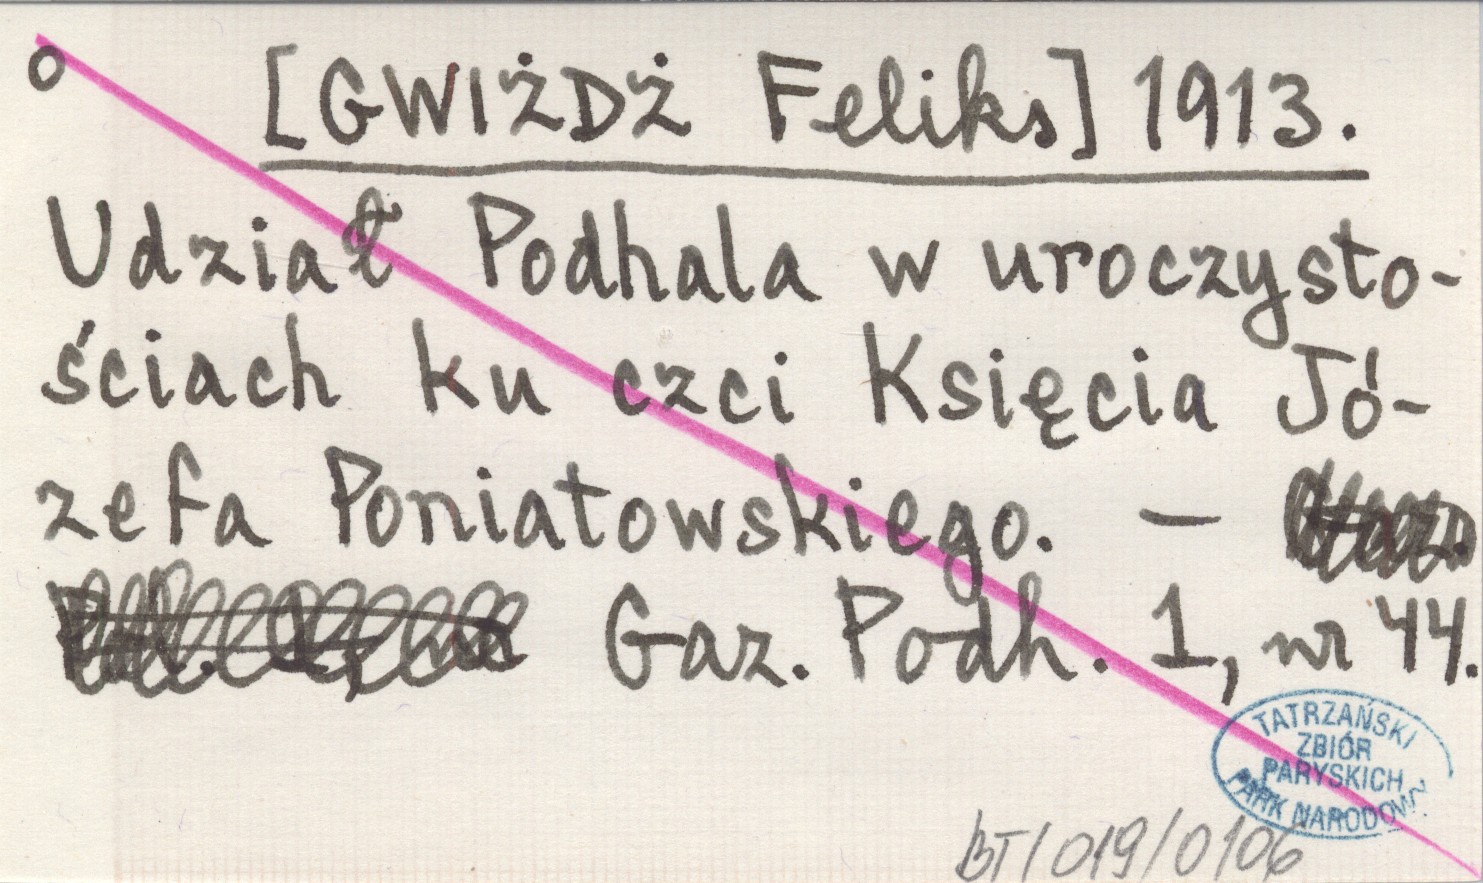 [GWIŻDŻ Feliks] 1913.
Udział Podhala w uroczysto-
ściach ku czci Księcia Jó-
zefa Poniatowskiego. —
Gaz. Podh. 1, nr 44.
TATRZAŃSKI
ZBIÓR
PARYSKICH
PARK NARODOWY
BT/019/0106